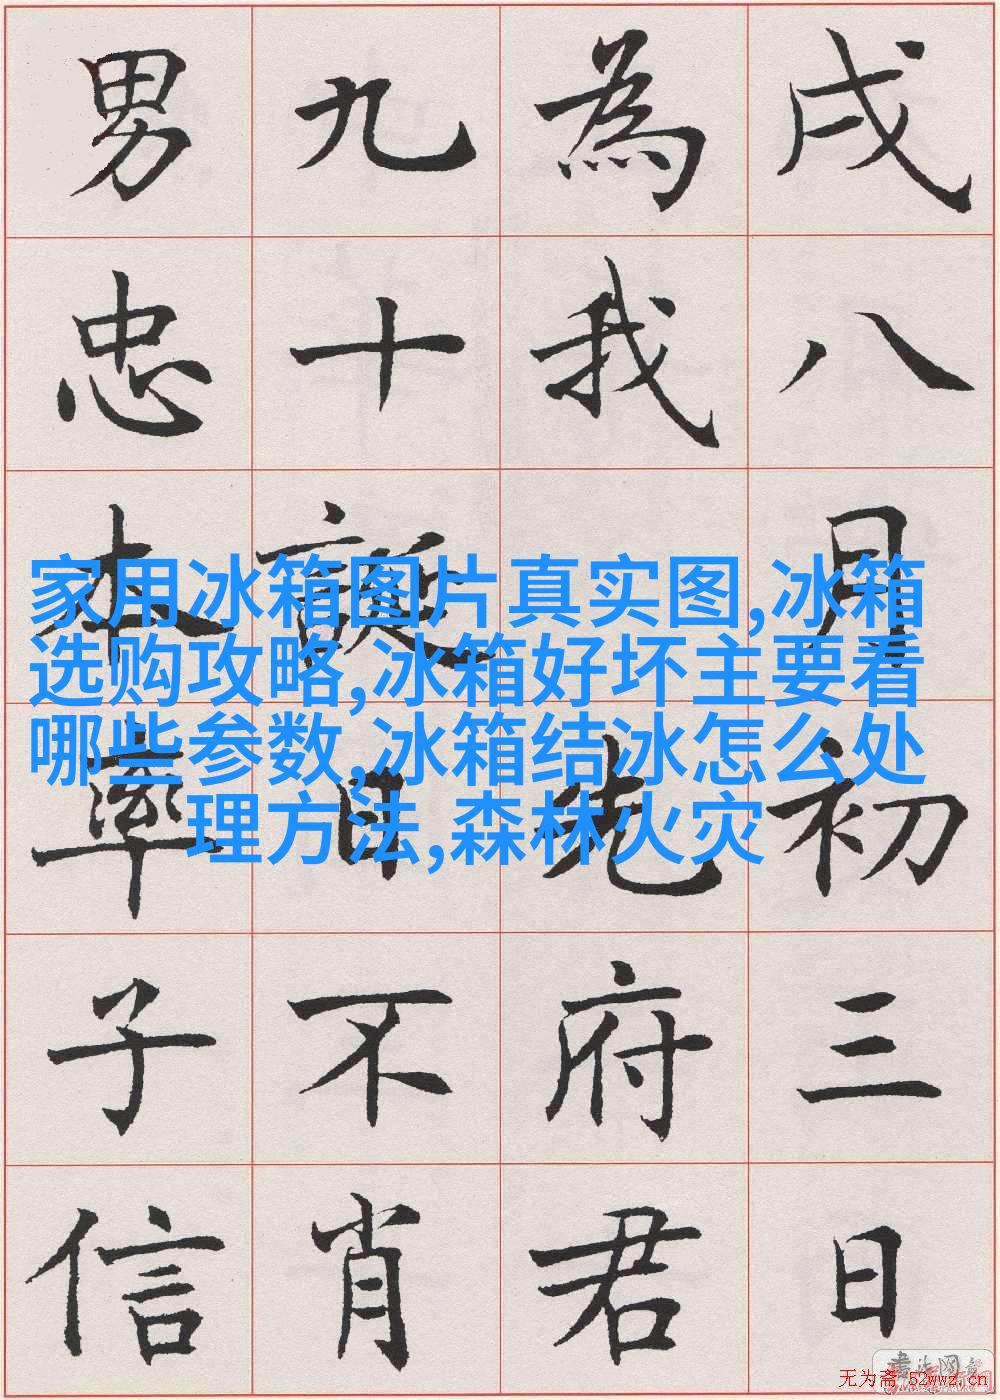 戌八月初三日
為我先府君
九十誕日不肖
男忠本率子信
家用冰箱图片真实图,冰箱
选购攻略,冰箱好坏主要看
哪些参数,冰箱结冰怎么处
理方法,森林火灾
无为斋 52wwz.cn